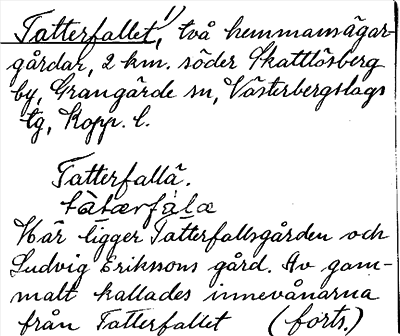 Tatterfallet, 1) två hemmansägar-
gårdar, 2 km. söder Skattlösberg
by, Grangärde sn, Västerbergslags
tg, Kopp. l.
Tatterfallä.
tàtærfàlæ
Här ligger Tatterfallsgården och
Ludvig Erikssons gård. Av gam-
malt kallades innevånarna
från Tatterfallet (forts.)